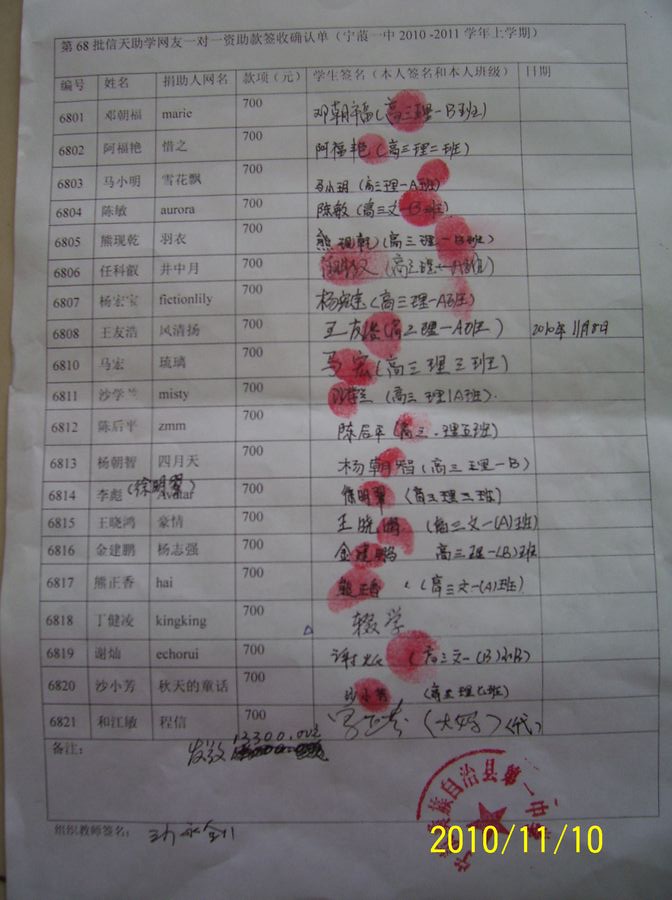 第 68 批信天助学网友一对一资助款签收确认单（宁蒗一中 2010 -2011 学年上学期）
编号 姓名 捐助人网名 款项（元） 学生签名（本人签名和本人班级） 日期
6801 邓朝福 marie 700 邓朝福(高三理一B班)
6802 阿福艳 惜之 700 阿福艳(高三理二班)
6803 马小明 雪花飘 700 马小明(高三理一A班)
6804 陈敏 aurora 700 陈敏(高三文一B班)
6805 熊现乾 羽衣 700 熊现乾(高三理一B班)
6806 任科叡 井中月 700
6807 杨宏宝 fictionlily 700 杨宏宝(高三理一A班)
6808 王友浩 风清扬 700 王友浩(高三理一A班) 2010年11月8日
6810 马宏 琉璃 700 马宏(高三理三班)
6811 沙学兰 misty 700 沙学兰(高三理1A班).
6812 陈后平 zmm 700 陈后平(高三.理五班)
6813 杨朝智 四月天 700 杨朝智(高三理一B)
6814 李彪(徐明翠) Avatar 700 徐明翠(高三理二班)
6815 王晓鸿 豪情 700 王晓鸿(高三文一(A)班)
6816 金建鹏 杨志强 700 金建鹏 高三理一(B)班
6817 熊正香 hai 700 熊正香(高三文一(A)班)
6818 丁健凌 kingking 700 辍学
6819 谢灿 echorui 700 谢灿
6820 沙小芳 秋天的童话 700 沙小芳
6821 和江敏 程信 700 (大妈)(代)
备注： 发放 13300.00元
组织教师签名：
族自治县
一中
2010/11/10